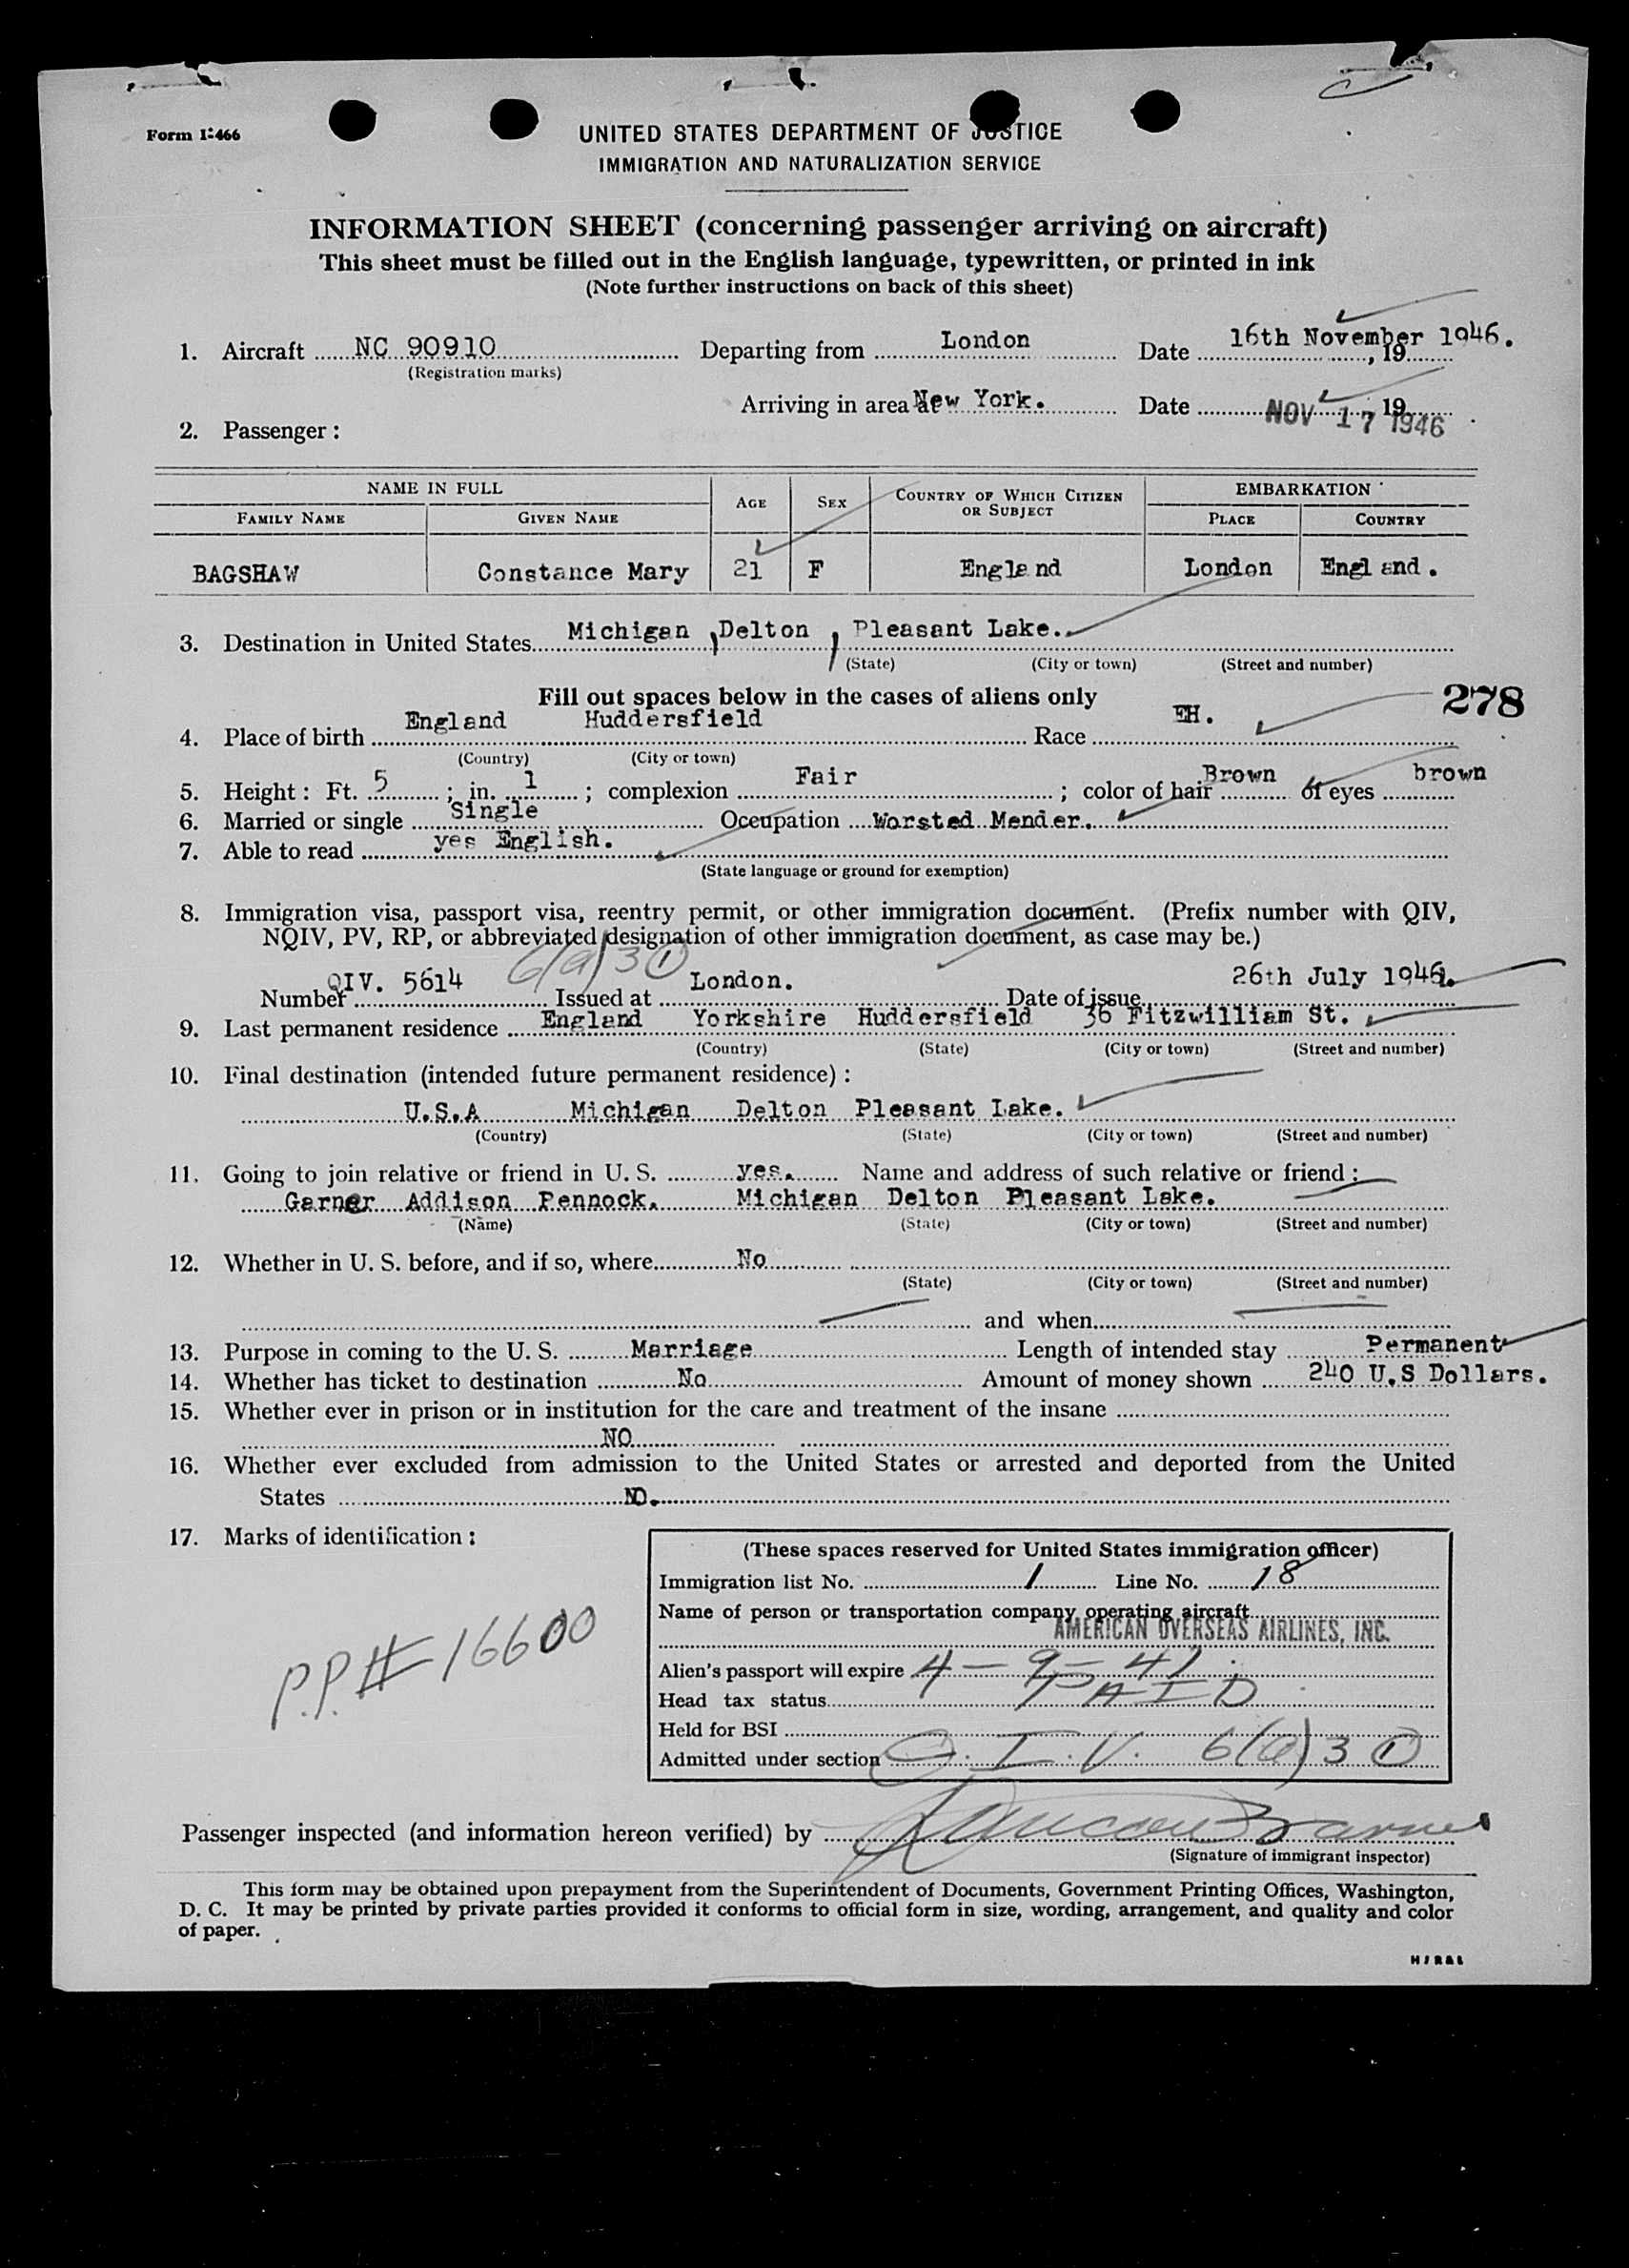 Form I-466
UNITED STATES DEPARTMENT OF JUSTICE
IMMIGRATION AND NATURALIZATION SERVICE
INFORMATION SHEET (concerning passenger arriving on aircraft)
This sheet must be filled out in the English language, typewritten, or printed in ink
(Note further instructions on back of this sheet)
1. Aircraft NC 90910 Departing from London Date 16th November 1946. , 19
(Registration marks)
Arriving in area at New York. Date NOV 17 1946 , 19
2. Passenger :
NAME IN FULL AGE SEX COUNTRY OF WHICH CITIZEN OR SUBJECT EMBARKATION
FAMILY NAME GIVEN NAME PLACE COUNTRY
BAGSHAW Constance Mary 21 F England London England.
3. Destination in United States Michigan, Delton, Pleasant Lake.
(State) (City or town) (Street and number)
Fill out spaces below in the cases of aliens only
278
4. Place of birth England Huddersfield Race EH.
(Country) (City or town)
5. Height : Ft. 5 ; in. 1 ; complexion Fair ; color of hair Brown of eyes brown
6. Married or single Single Occupation Worsted Mender.
7. Able to read yes English.
(State language or ground for exemption)
8. Immigration visa, passport visa, reentry permit, or other immigration document. (Prefix number with QIV,
NQIV, PV, RP, or abbreviated designation of other immigration document, as case may be.)
6(a)3 (1)
Number QIV. 5614 Issued at London. Date of issue 26th July 1946.
9. Last permanent residence England Yorkshire Huddersfield 36 Fitzwilliam St.
(Country) (State) (City or town) (Street and number)
10. Final destination (intended future permanent residence) :
U.S.A Michigan Delton Pleasant Lake.
(Country) (State) (City or town) (Street and number)
11. Going to join relative or friend in U. S. yes. Name and address of such relative or friend :
Garner Addison Pennock. Michigan Delton Pleasant Lake.
(Name) (State) (City or town) (Street and number)
12. Whether in U. S. before, and if so, where No
(State) (City or town) (Street and number)
and when
13. Purpose in coming to the U. S. Marriage Length of intended stay Permanent
14. Whether has ticket to destination No Amount of money shown 240 U.S Dollars.
15. Whether ever in prison or in institution for the care and treatment of the insane
NO
16. Whether ever excluded from admission to the United States or arrested and deported from the United
States NO.
17. Marks of identification :
P.P.# 16600
(These spaces reserved for United States immigration officer)
Immigration list No. 1 Line No. 18
Name of person or transportation company operating aircraft
AMERICAN OVERSEAS AIRLINES, INC.
Alien's passport will expire 4 - 9 - 47
Head tax status PAID
Held for BSI
Admitted under section Q. I. V. 6(a)3 (1)
Passenger inspected (and information hereon verified) by
(Signature of immigrant inspector)
This form may be obtained upon prepayment from the Superintendent of Documents, Government Printing Offices, Washington,
D. C. It may be printed by private parties provided it conforms to official form in size, wording, arrangement, and quality and color
of paper.